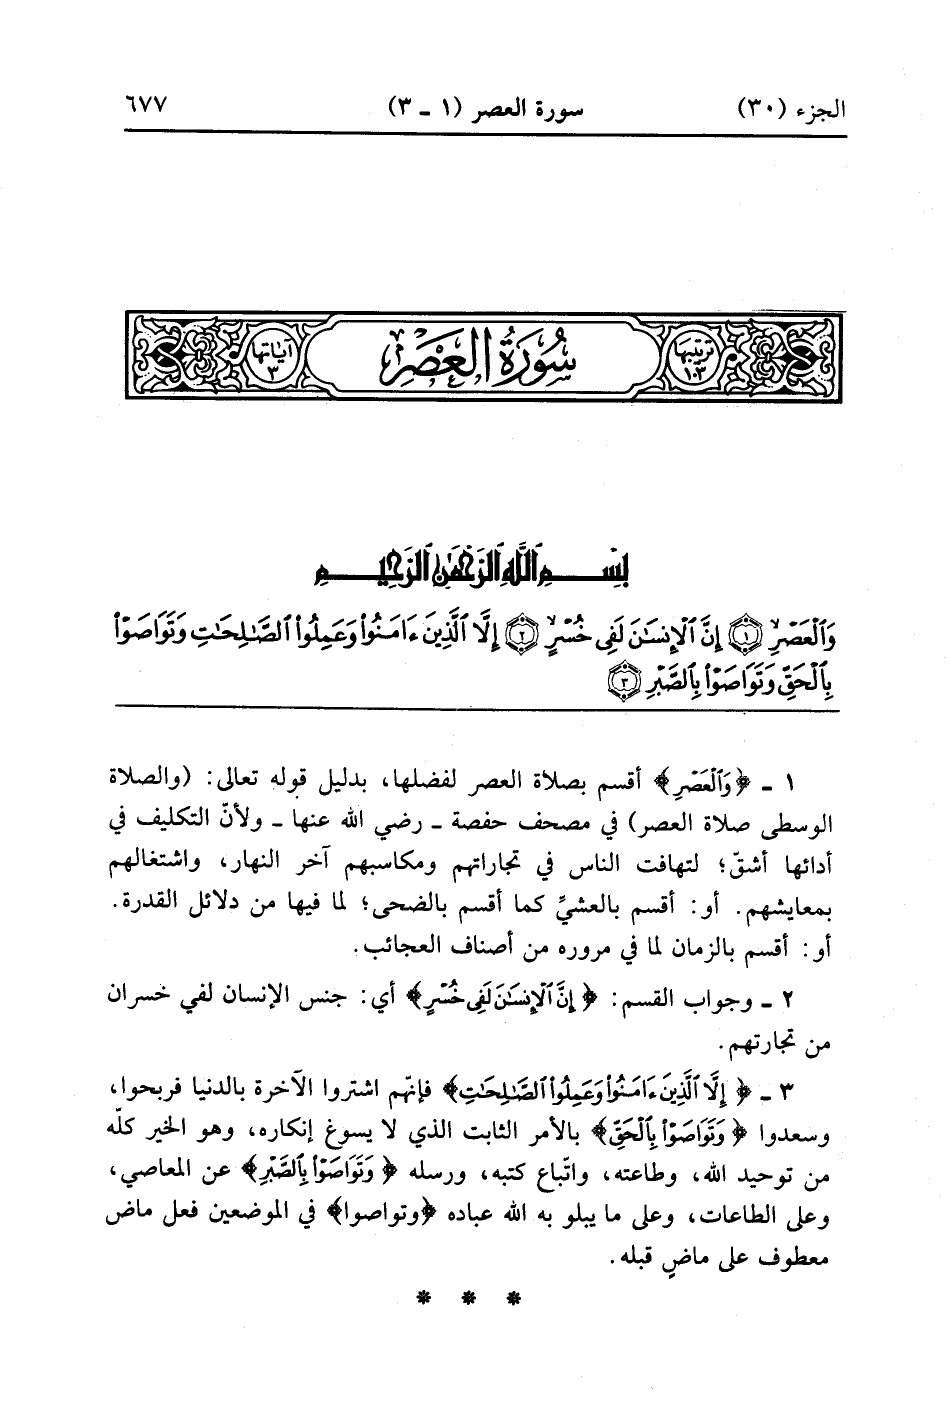 الجزء (٣٠) سورة العصر (١ - ٣) ٦٧٧
ترتيبها ١٠٣ سُورَةُ العَصْرِ آياتها ٣
بِسْمِ ٱللَّهِ ٱلرَّحْمَٰنِ ٱلرَّحِيمِ
وَٱلْعَصْرِ ۝١ إِنَّ ٱلْإِنسَٰنَ لَفِى خُسْرٍ ۝٢ إِلَّا ٱلَّذِينَ ءَامَنُوا۟ وَعَمِلُوا۟ ٱلصَّٰلِحَٰتِ وَتَوَاصَوْا۟
بِٱلْحَقِّ وَتَوَاصَوْا۟ بِٱلصَّبْرِ ۝٣
١ - ﴿وَٱلْعَصْرِ﴾ أقسم بصلاة العصر لفضلها، بدليل قوله تعالى: (والصلاة
الوسطى صلاة العصر) في مصحف حفصة - رضي الله عنها - ولأنّ التكليف في
أدائها أشقّ؛ لتهافت الناس في تجاراتهم ومكاسبهم آخر النهار، واشتغالهم
بمعايشهم. أو: أقسم بالعشيِّ كما أقسم بالضحى؛ لما فيها من دلائل القدرة.
أو: أقسم بالزمان لما في مروره من أصناف العجائب.
٢ - وجواب القسم: ﴿إِنَّ ٱلْإِنسَٰنَ لَفِى خُسْرٍ﴾ أي: جنس الإنسان لفي خسران
من تجارتهم.
٣ - ﴿إِلَّا ٱلَّذِينَ ءَامَنُوا۟ وَعَمِلُوا۟ ٱلصَّٰلِحَٰتِ﴾ فإنّهم اشتروا الآخرة بالدنيا فربحوا،
وسعدوا ﴿وَتَوَاصَوْا۟ بِٱلْحَقِّ﴾ بالأمر الثابت الذي لا يسوغ إنكاره، وهو الخير كلّه
من توحيد الله، وطاعته، واتّباع كتبه، ورسله ﴿وَتَوَاصَوْا۟ بِٱلصَّبْرِ﴾ عن المعاصي،
وعلى الطاعات، وعلى ما يبلو به الله عباده ﴿وتواصوا﴾ في الموضعين فعل ماض
معطوف على ماضٍ قبله.
* * *